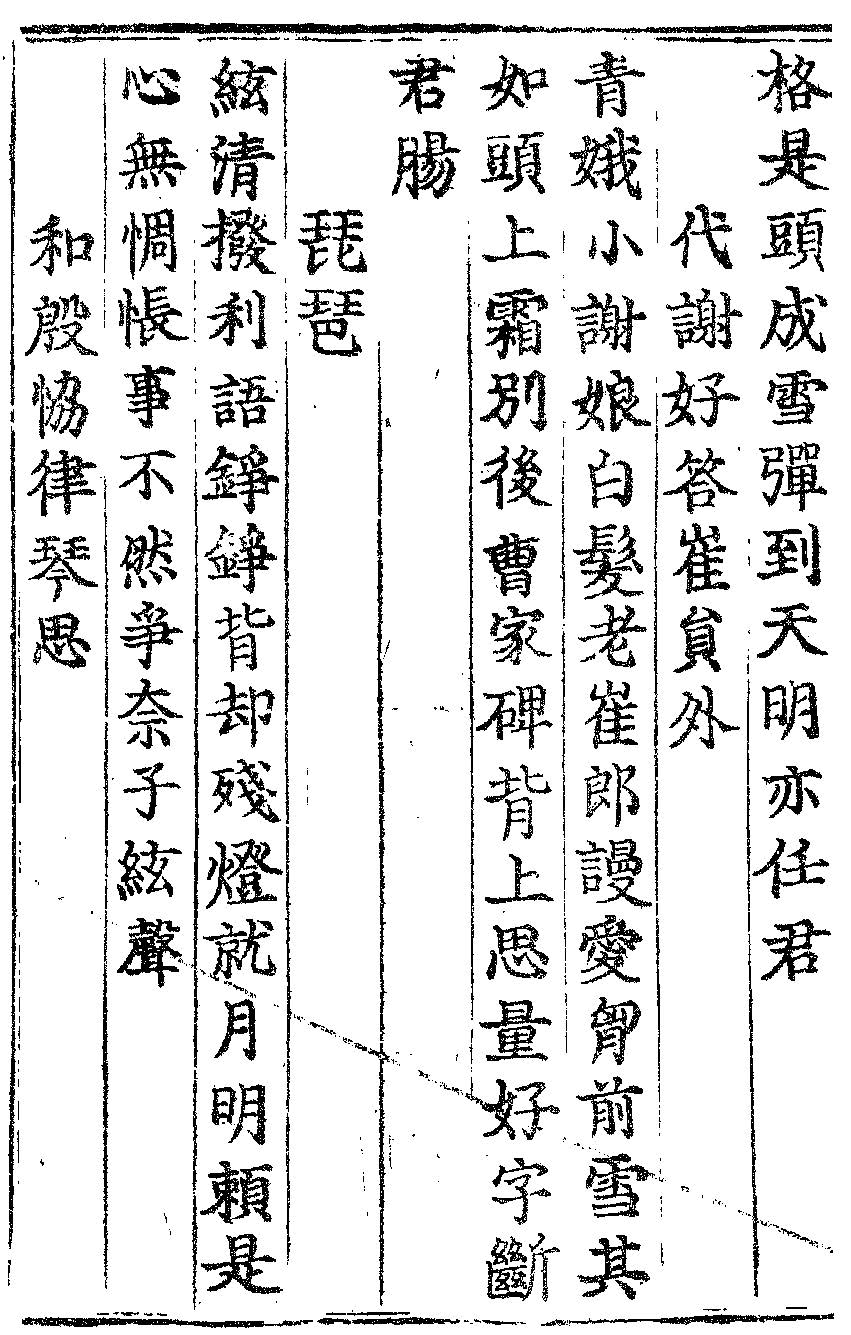 格是頭成雪彈到天明亦任君
代謝好答崔貟外
青娥小謝娘白髮老崔郎謾愛胷前雪其
如頭上霜別後曹家碑背上思量好字斷
君腸
琵琶
絃清撥利語錚錚背却殘燈就月明頼是
心無惆悵事不然爭奈子絃聲
和殷恊律琴思